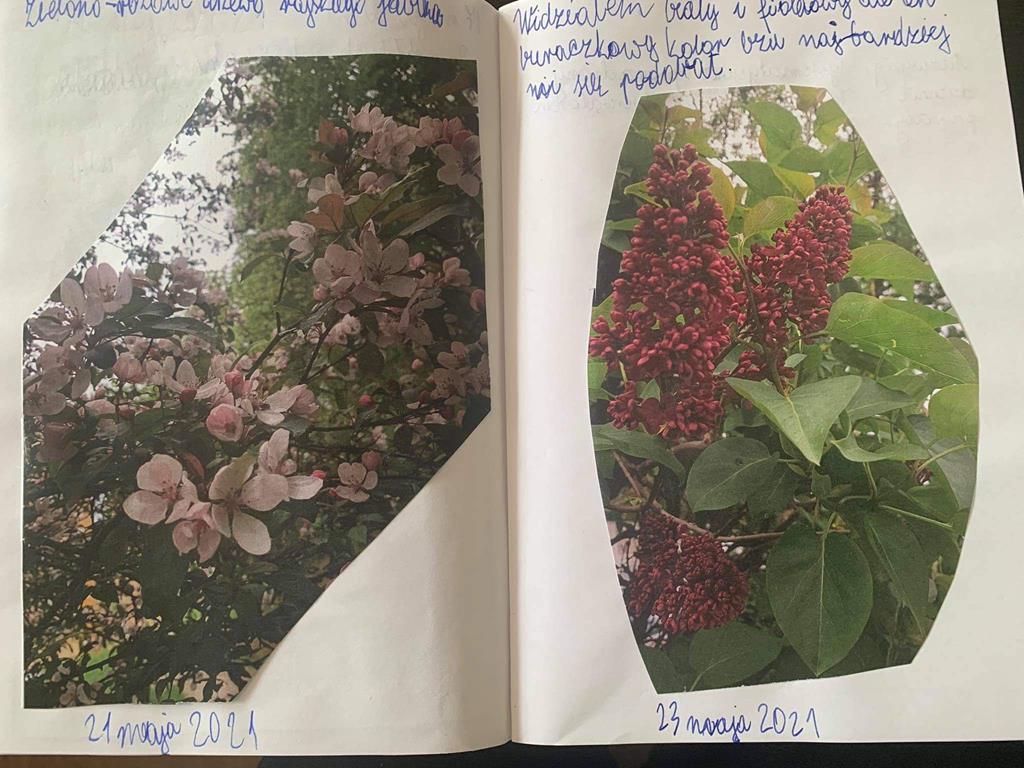 Zielono-różowe drzewo rajskiej jabłka
21 maja 2021
Widziałem biały i fioletowy ale ten
buraczkowy kolor bzu najbardziej
mi się podobał.
23 maja 2021